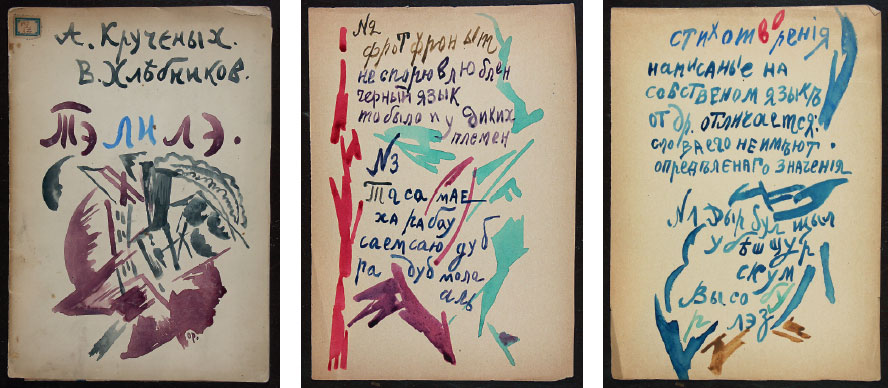 А. Крученых.
В. Хлѣбников.
ТЭ ЛИ ЛЭ.
№2
фрот фрон ыт
не спорю влюблен
черный язык
то было и у диких
племен
№3
Та са мае
ха ра бау
саем сию дуб
ра дуб мола
аль
стихотворенія
написаные на
собственом языкѣ
от др. отличается:
слова его не имѣют
опредѣленаго значенія
№1. Дыр бул щыл
убѣшщур
скум
вы со бу
р л эз